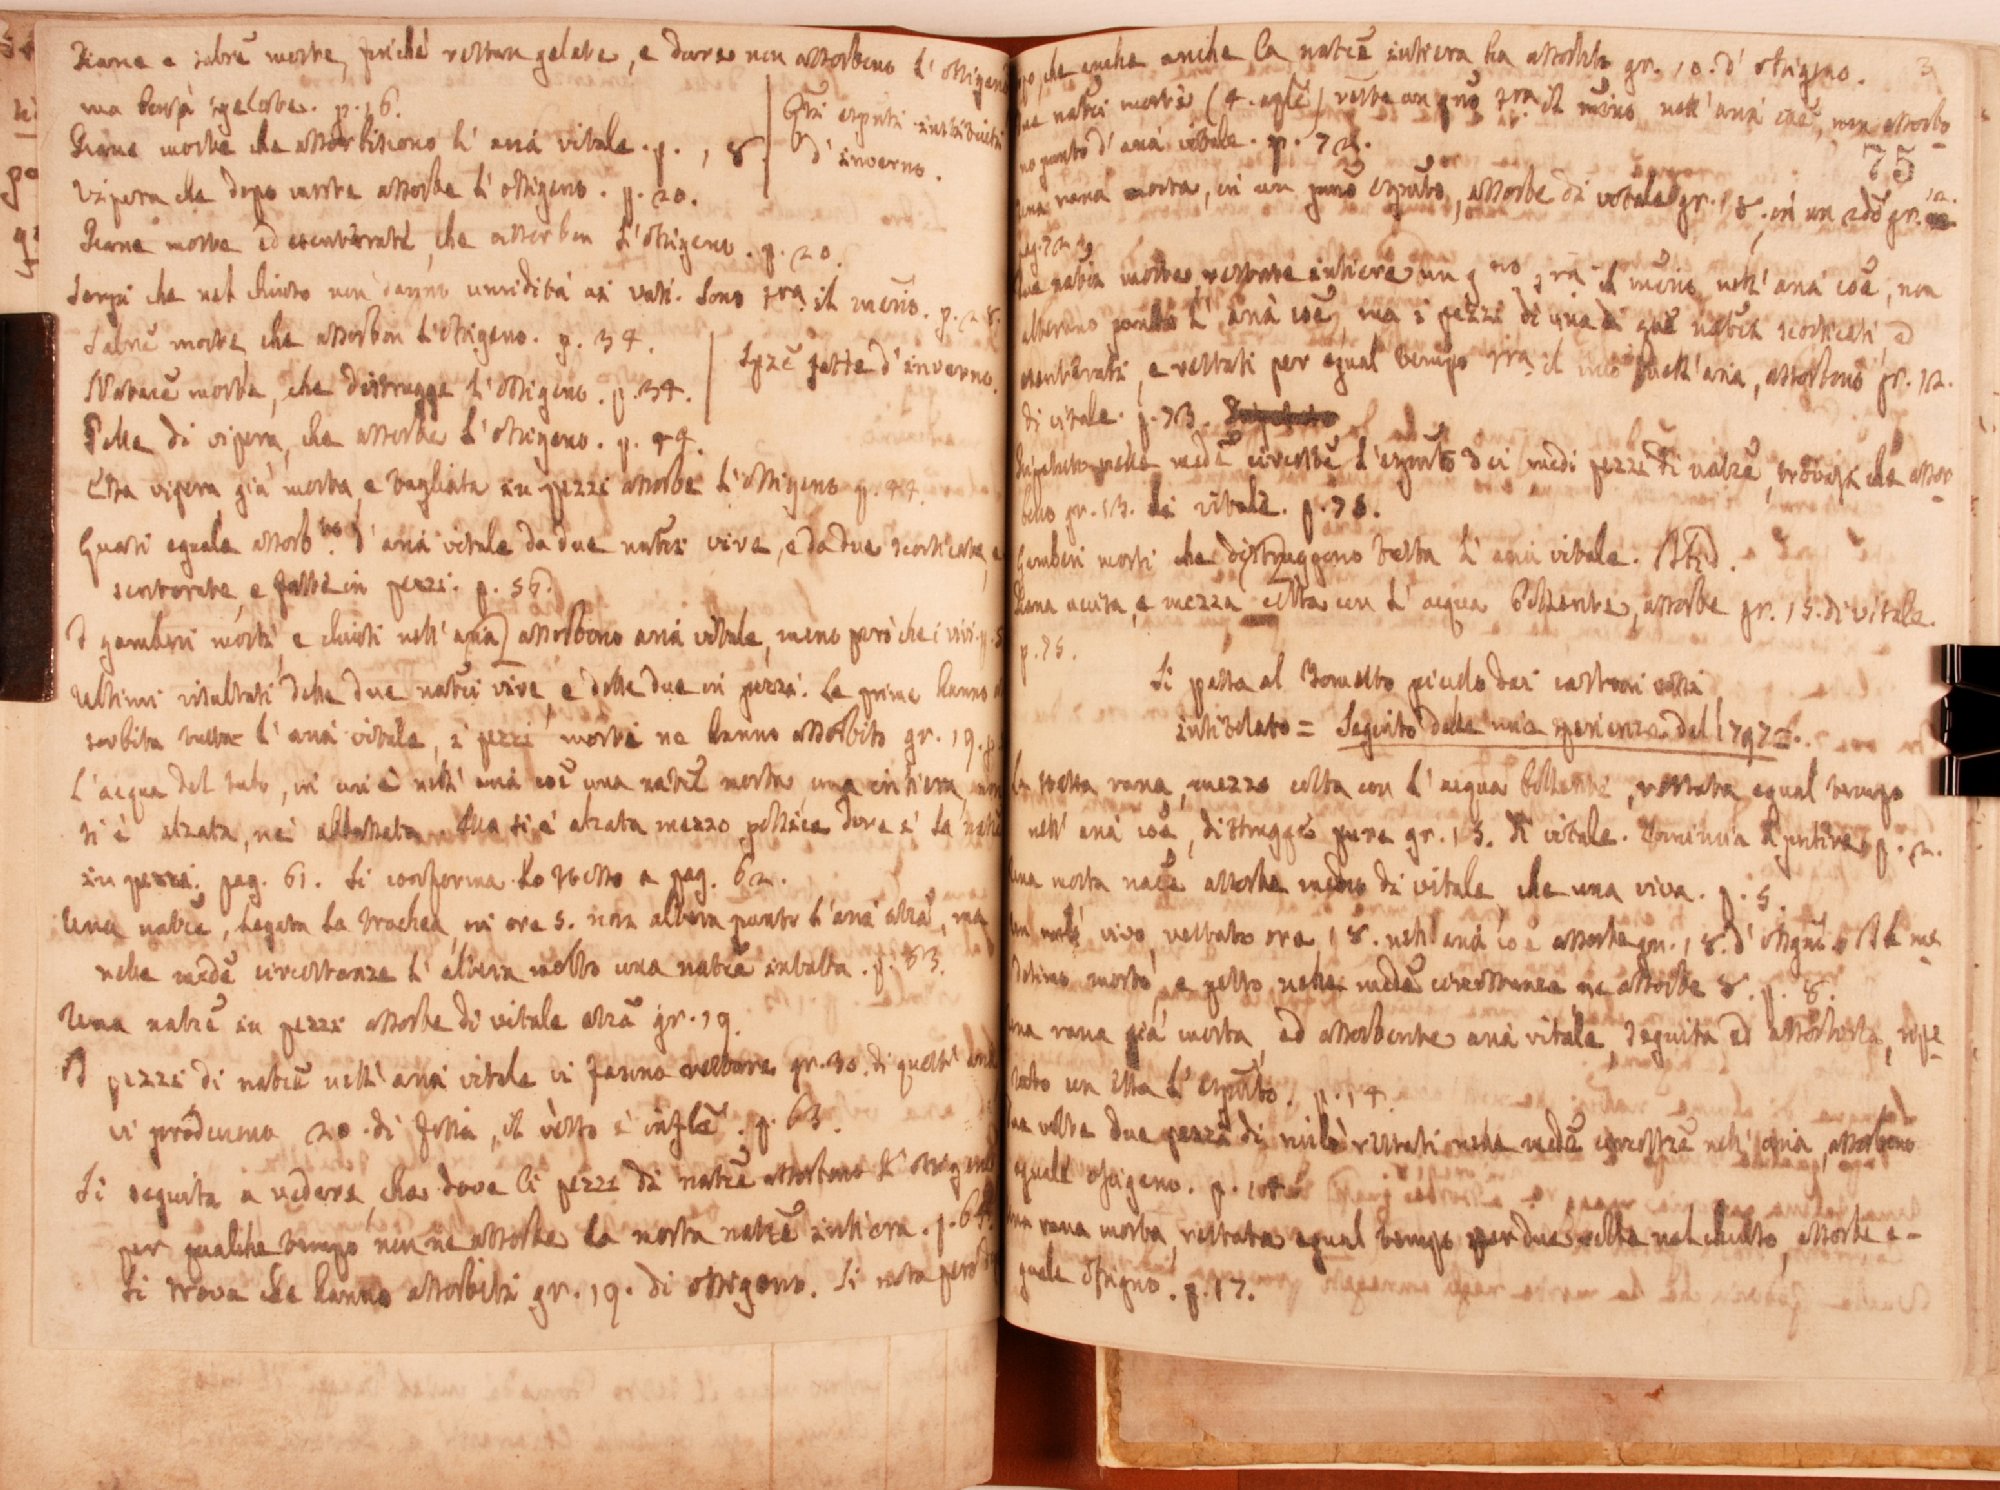 Rane e salre morte, finché restan gelate, e dure non assorbono l'ossigeno
ma bensì sgelate. p. 16.
Rane morte che assorbiscono l'aria vitale. p. 18.
Qti esputi instituiti
d'inverno.
Vipera che dopo morte assorbe l'ossigeno. p. 20.
Rane morte ed isventrate, che assorbon l'ossigeno. p. 20.
Serpi che nel chiuso non danno umidità ai vasi. Sono sra il merio. p. 28.
Salre morte, che assorbon l'ossigeno. p. 34.
Natrice morta, che distrugge l'ossigeno. p. 34.
Spze fatte d'inverno.
Pelle di vipera, che assorbe l'ossigeno. p. 44.
Essa vipera già morta, e tagliata in pezzi assorbe l'ossigeno p. 44.
Quasi eguale assorb.to d'aria vitale da due natrici vive, e da due scorticate, e
sventrate, e fatte in pezzi. p. 56.
I gamberi morti, e chiusi nell'aria assorbono aria vitale, meno però che i vivi. p. 5
Ultimi risultati delle due natrici vive, e delle due in pezzi. Le prime hanno as
sorbita tutta l'aria vitale, i pezzi morti ne hanno assorbito gr. 19. p.
L'acqua del tubo, in cui è nell'aria coe una natrice morta, una intiera, non
si è alzata, né abbassata. Ma si è alzata mezzo pollice dove è la natrice
in pezzi. pag. 61. Si conferma lo stesso a pag. 62.
Una natre, legata la trachea, in ore 5. non altera punto l'aria atrā, ma
nelle medē circostanze l'altera molto una natrē intatta. p. 83.
Una natrē in pezzi assorbe di vitale atrā gr. 19.
I pezzi di natrē nell'aria vitale vi fanno restare gr. 30. di quest'aria
vi producono 20. di fossa, il resto è inflē. p. 63.
Si seguita a vedere, che dove li pezzi di natrē assorbono l'ossigeno
per qualche tempo non ne assorbe la morta natrē intiera. p. 64.
Si trova che hanno assorbiti gr. 19. di ossigeno. Si nota però do
3
75
po, che anche anche la natrē intiera ha assorbito gr. 10. d'ossigeno.
Due natrici morte (4. aplē) restate un gno sra il merio nell'aria coē, non assorbo
no punto d'aria vitale. p. 72.
Una rana morta, in un primo esputo, assorbe di vitale gr. 18, in un 2do gr. 12.
pag. 72.
Due natrici morte, restate intiere un gno sra il merio nell'aria coē, non
alterano punto l'aria coē, ma i pezzi di una di que natrici scorticati, e
sventrati, e restati per egual tempo sra il mēo nell'aria, assorbono gr. 12.
di vitale. p. 73.
Ripetuto nelle medē circostē l'esputo dei medi pezzi di natrē, trovasi che assor
bono gr. 13. di vitale. p. 75.
Gamberi morti che distruggono tutta l'aria vitale. Ibid.
Rana uccisa, e mezza cotta con l'acqua bollente, assorbe gr. 15. di vitale.
p. 75.
Si passa al Tometto piccolo dai cartoni rossi
intitolato = Seguito delle mie sperienze del 1797 =.
La stessa rana, mezzo cotta con l'acqua bollente, restata egual tempo
nell'aria coē, distrugge pure gr. 15. di vitale. Comincia a putire. p. 2.
Una morta natrē assorbe meno di vitale, che una viva. p. 5.
Un nulō vivo, restato ore 18. nell'aria coē assorbe gr. 18. d'ossignō. Il me
desimo morto, e posto nelle medē circostanze, ne assorbe 8. p. 8.
Una rana già morta, ed assorbente aria vitale, seguita ad assorbirla, ripe
tuto un essa l'esputo. p. 14.
Due volte due pezzi di nulō restati nelle medē circostzē nell'aria, assorbono
eguale ossigeno. p. 14.
Una rana morta, restata egual tempo per due volte nel chiuso, assorbe e-
guale ossigno. p. 17.